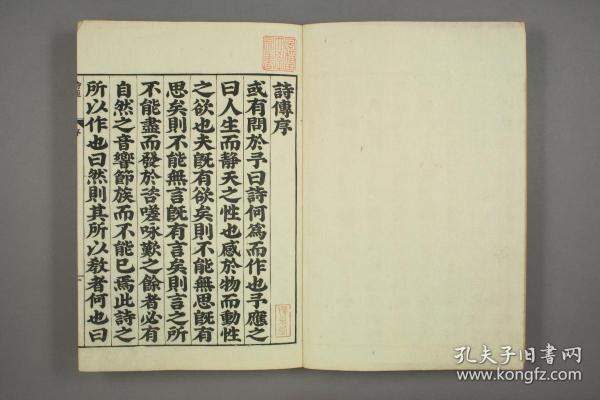 詩傳序
或有問於予曰詩何為而作也予應之
曰人生而靜天之性也感於物而動性
之欲也夫既有欲矣則不能無思既有
思矣則不能無言既有言矣則言之所
不能盡而發於咨嗟咏歎之餘者必有
自然之音響節族而不能已焉此詩之
所以作也曰然則其所以教者何也曰
孔夫子旧书网
www.kongfz.com